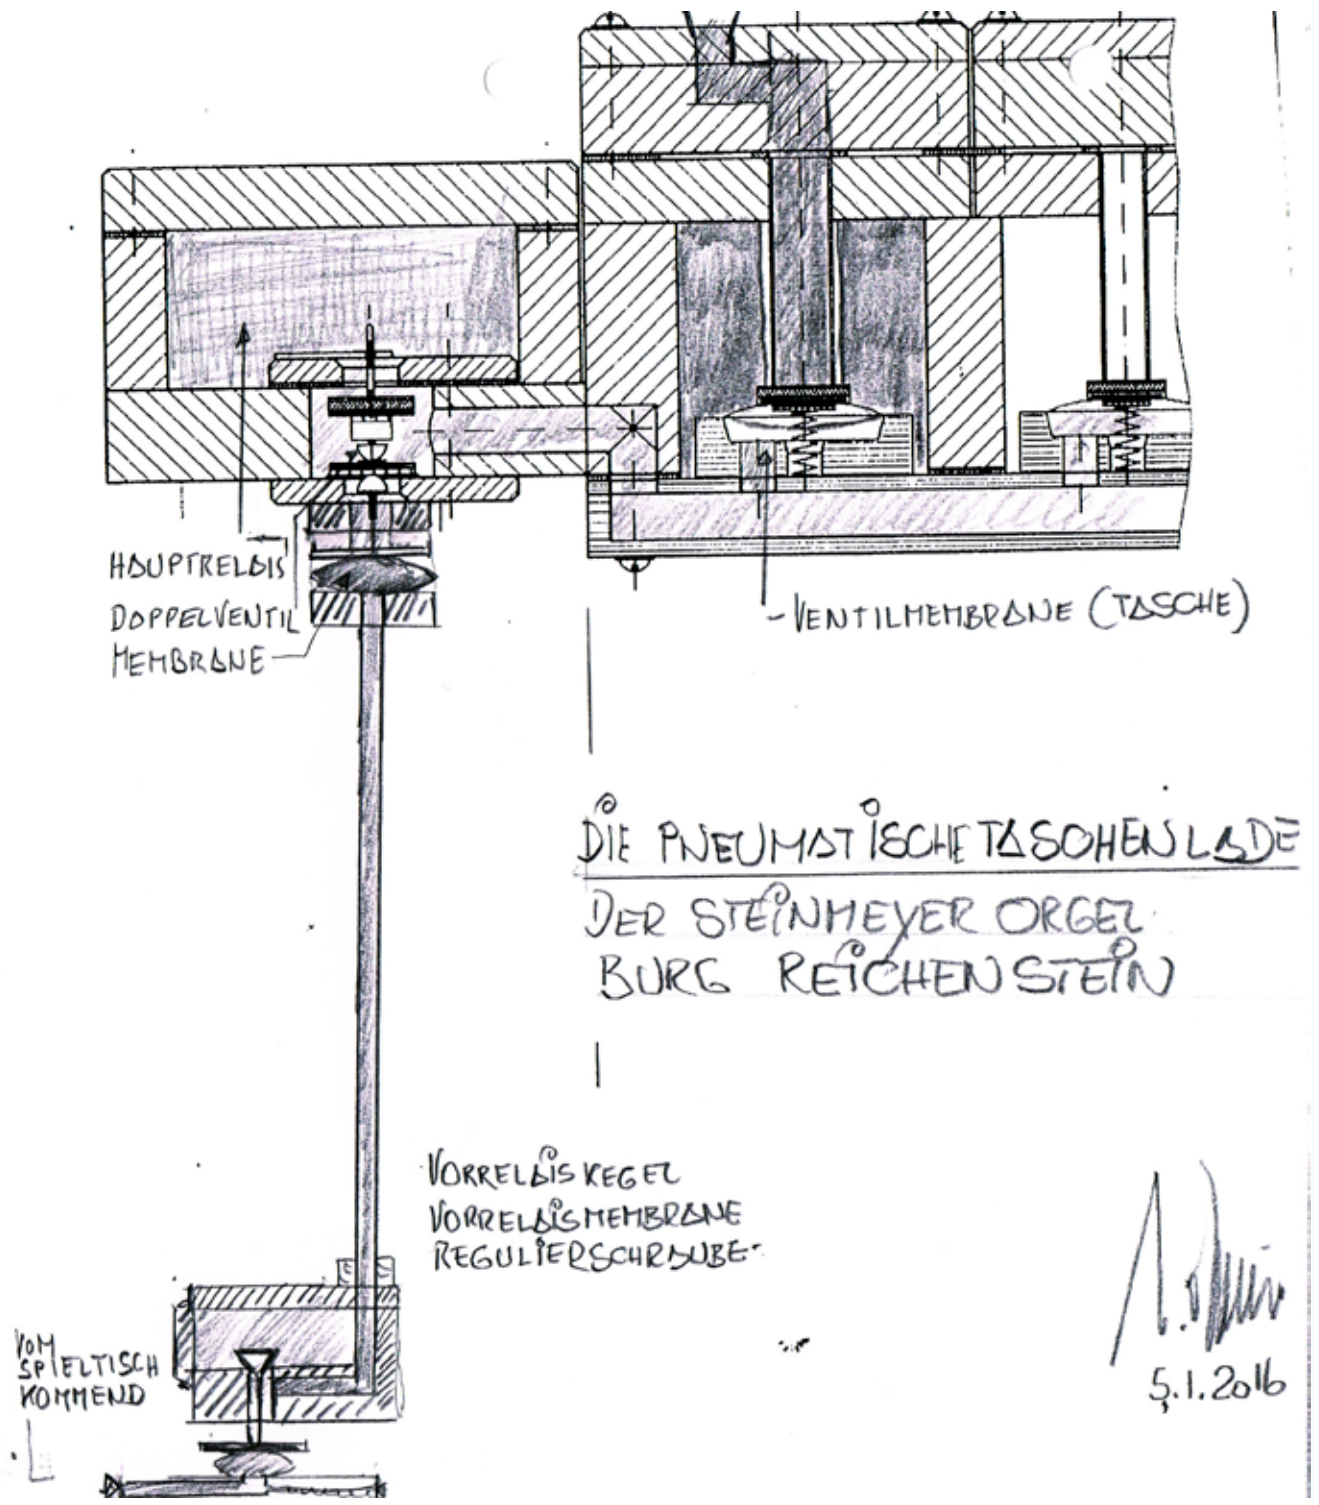 HAUPTRELAIS
DOPPELVENTIL
MEMBRANE
- VENTILMEMBRANE (TASCHE)
DIE PNEUMATISCHE TASCHENLADE
DER STEINMEYER ORGEL
BURG REICHENSTEIN
VORRELAISKEGEL
VORRELAISMEMBRANE
REGULIERSCHRAUBE-
VOM
SPIELTISCH
KOMMEND
5.1.2016